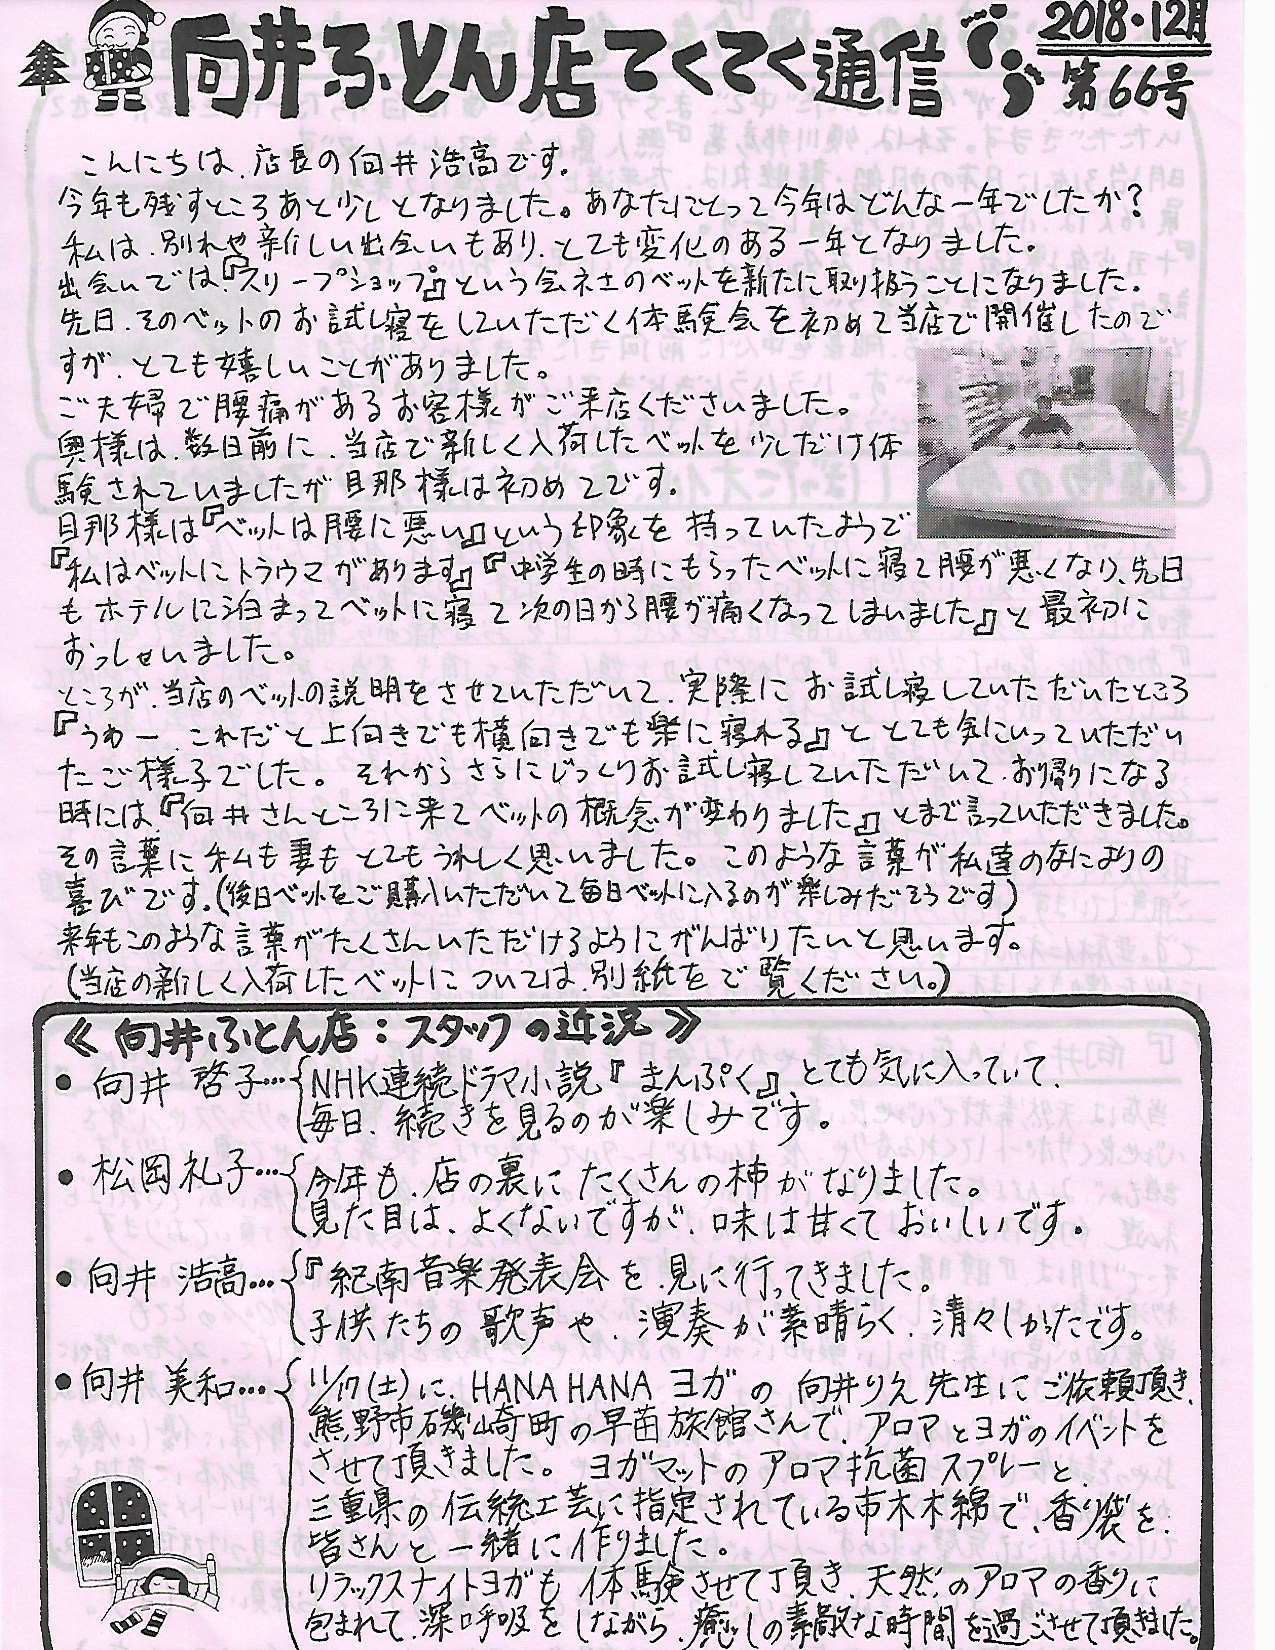 向井ふとん店てくてく通信
2018・12月
第66号
こんにちは、店長の向井浩高です。
今年も残すところあと少しとなりました。あなたにとって今年はどんな一年でしたか?
私は、別れや新しい出会いもあり、とても変化のある一年となりました。
出会いでは、『スリープショップ』という会社さのベットを新たに取り扱うことになりました。
先日、そのベットのお試し寝をしていただく体験会を初めて当店で開催したので
すが、とても嬉しいことがありました。
ご夫婦で腰痛があるお客様がご来店くださいました。
奥様は、数日前に、当店で新しく入荷したベットを少しだけ体
験されていましたが旦那様は初めてです。
旦那様は『ベットは腰に悪い』という印象を持っていたようで
『私はベットにトラウマがあります』『中学生の時にもらったベットに寝て腰が悪くなり、先日
もホテルに泊まってベットに寝て次の日から腰が痛くなってしまいました』と最初に
おっしゃいました。
ところが、当店のベットの説明をさせていただいて、実際にお試し寝していただいたところ
『うわー、これだと上向きでも横向きでも楽に寝れる』ととても気にいっていただい
たご様子でした。それからさらにじっくりお試し寝していただいて、お帰りになる
時には『向井さんところに来てベットの概念が変わりました』とまで言っていただきました。
その言葉に私も妻もとてもうれしく思いました。このような言葉が私達のなによりの
喜びです。(後日ベットをご購入いただいて毎日ベットに入るのが楽しみだそうです)
来年もこのような言葉がたくさんいただけるようにがんばりたいと思います。
(当店の新しく入荷したベットについては、別紙をご覧ください。)
≪向井ふとん店:スタッフの近況≫
●向井 啓子…NHK連続ドラマ小説『まんぷく』とても気に入っていて、
毎日、続きを見るのが楽しみです。
●松岡礼子…今年も、店の裏にたくさんの柿がなりました。
見た目は、よくないですが、味は甘くておいしいです。
●向井 浩高…『紀南音楽発表会を、見に行ってきました。
子供たちの歌声や、演奏が素晴らく、清々しかったです。
●向井 美和…11/17(土)に、HANA HANA ヨガの向井りえ先生にご依頼頂き、
熊野市磯崎町の早苗旅館さんで、アロマとヨガのイベントを
させて頂きました。ヨガマットのアロマ抗菌スプレーと、
三重県の伝統工芸に指定されている市木木綿で、香り袋を、
皆さんと一緒に作りました。
リラックスナイトヨガも体験させて頂き、天然のアロマの香りに
包まれて、深呼吸をしながら、癒しの素敵な時間を過ごさせて頂きました。